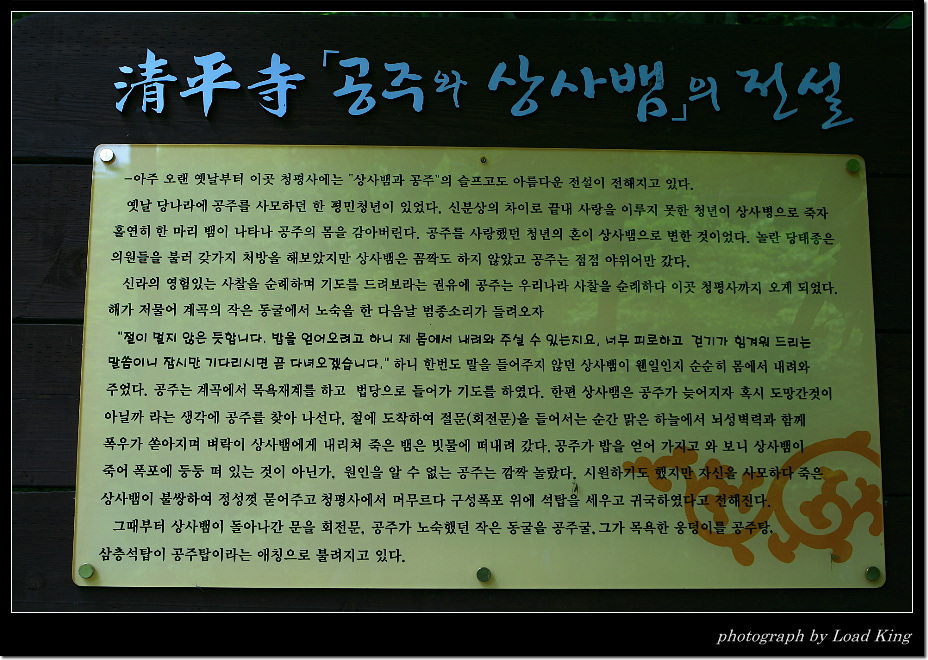 清平寺「공주와 상사뱀」의 전설
-아주 오랜 옛날부터 이곳 청평사에는 "상사뱀과 공주"의 슬프고도 아름다운 전설이 전해지고 있다.
옛날 당나라에 공주를 사모하던 한 평민청년이 있었다. 신분상의 차이로 끝내 사랑을 이루지 못한 청년이 상사병으로 죽자
홀연히 한 마리 뱀이 나타나 공주의 몸을 감아버린다. 공주를 사랑했던 청년의 혼이 상사뱀으로 변한 것이었다. 놀란 당태종은
의원들을 불러 갖가지 처방을 해보았지만 상사뱀은 꼼짝도 하지 않았고 공주는 점점 야위어만 갔다.
신라의 영험있는 사찰을 순례하며 기도를 드려보라는 권유에 공주는 우리나라 사찰을 순례하다 이곳 청평사까지 오게 되었다.
해가 저물어 계곡의 작은 동굴에서 노숙을 한 다음날 범종소리가 들려오자
"절이 멀지 않은 듯합니다. 밥을 얻어오려고 하니 제 몸에서 내려와 주실 수 있는지요, 너무 피로하고 걷기가 힘겨워 드리는
말씀이니 잠시만 기다리시면 곧 다녀오겠습니다." 하니 한번도 말을 들어주지 않던 상사뱀이 웬일인지 순순히 몸에서 내려와
주었다. 공주는 계곡에서 목욕재계를 하고 법당으로 들어가 기도를 하였다. 한편 상사뱀은 공주가 늦어지자 혹시 도망간것이
아닐까 라는 생각에 공주를 찾아 나선다. 절에 도착하여 절문(회전문)을 들어서는 순간 맑은 하늘에서 뇌성벽력과 함께
폭우가 쏟아지며 벼락이 상사뱀에게 내리쳐 죽은 뱀은 빗물에 떠내려 갔다. 공주가 밥을 얻어 가지고 와 보니 상사뱀이
죽어 폭포에 둥둥 떠 있는 것이 아닌가. 원인을 알 수 없는 공주는 깜짝 놀랐다. 시원하기도 했지만 자신을 사모하다 죽은
상사뱀이 불쌍하여 정성껏 묻어주고 청평사에서 머무르다 구성폭포 위에 석탑을 세우고 귀국하였다고 전해진다.
그때부터 상사뱀이 돌아나간 문을 회전문, 공주가 노숙했던 작은 동굴을 공주굴, 그가 목욕한 웅덩이를 공주탕,
삼층석탑이 공주탑이라는 애칭으로 불려지고 있다.
photograph by Load King